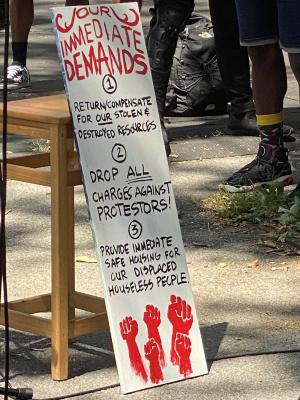 OUR
IMMEDIATE
DEMANDS
1
RETURN/COMPENSATE
FOR OUR STOLEN &
DESTROYED RESOURCES
2
DROP ALL
CHARGES AGAINST
PROTESTORS!
3
PROVIDE IMMEDIATE
SAFE HOUSING FOR
OUR DISPLACED
HOUSELESS PEOPLE